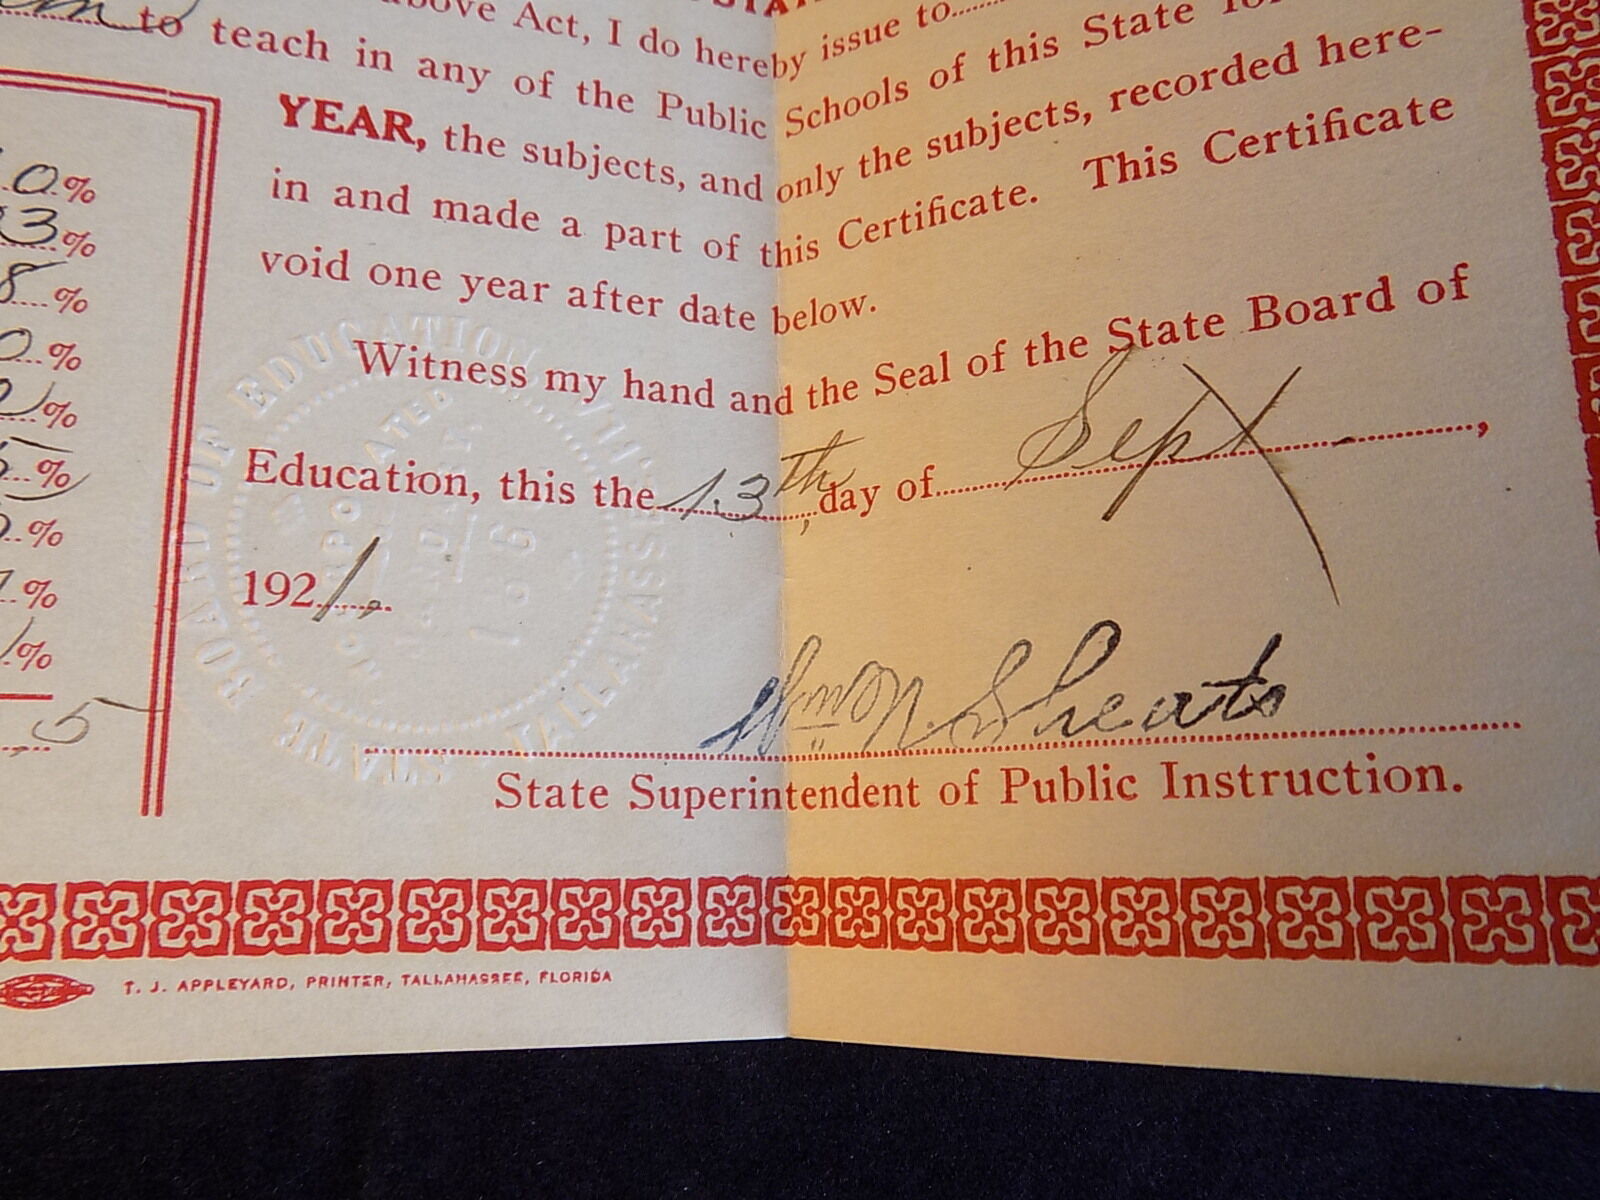 above Act, I do hereby issue to
to teach in any of the Public Schools of this State
YEAR, the subjects, and only the subjects, recorded here-
in and made a part of this Certificate. This Certificate
void one year after date below.
Witness my hand and the Seal of the State Board of
Education, this the 13th day of Sept,
1921.
Wm N. Sheats
State Superintendent of Public Instruction.
0%
3%
8%
0%
%
5%
%
%
%
5
STATE BOARD OF EDUCATION
TALLAHASSEE
T. J. APPLEYARD, PRINTER, TALLAHASSEE, FLORIDA